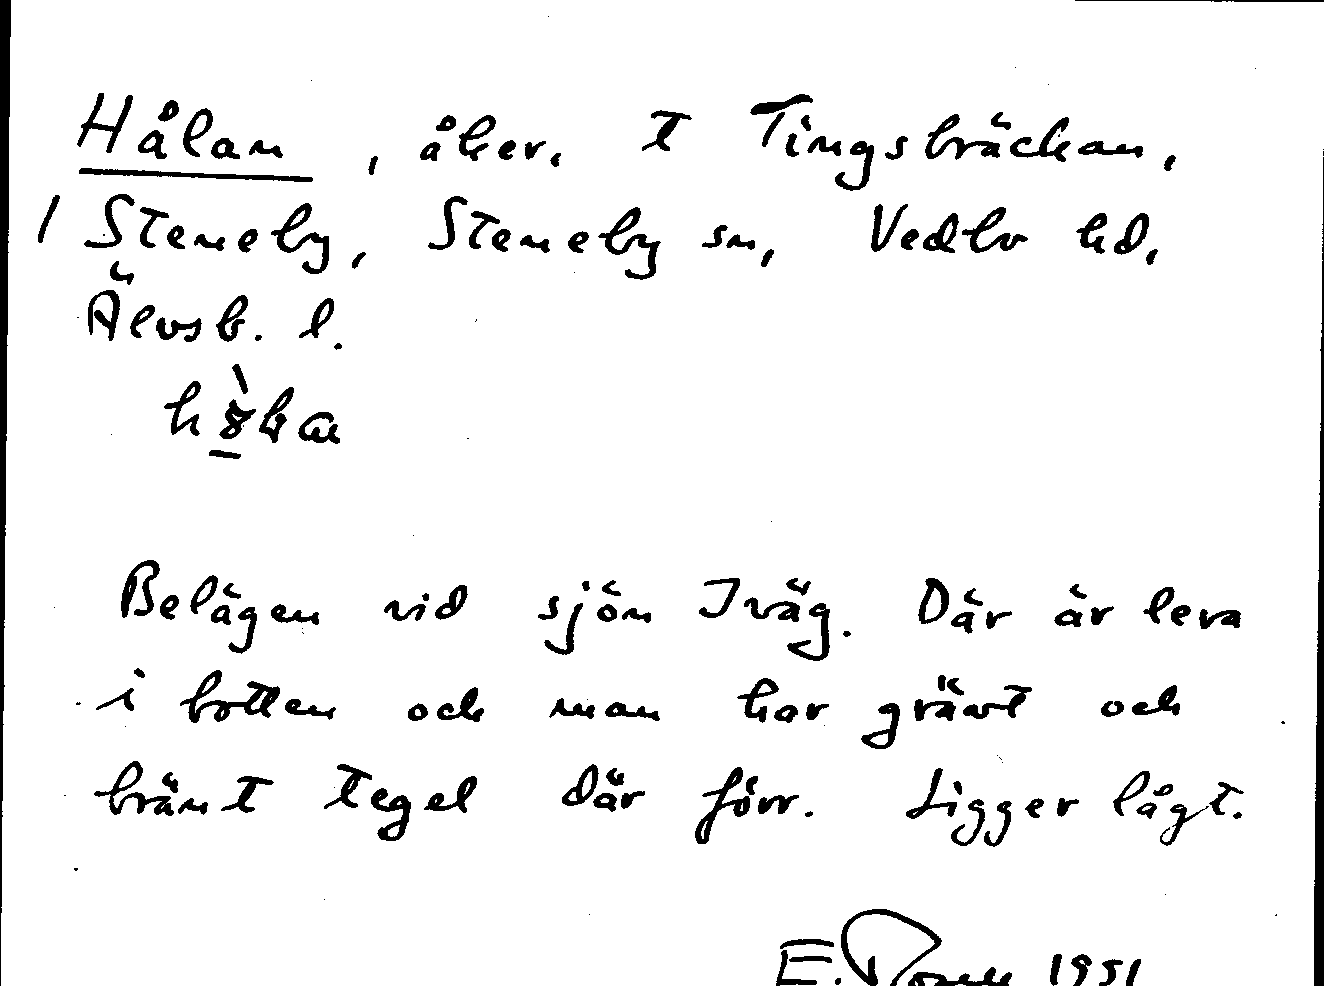 Hålan, åker. t Tingsbräckan,
1 Steneby, Steneby sn, Vedbo hd,
Älvsb. l.
Belägen vid sjön Iväg. Där är lera
i botten och man har grävt och
bränt tegel där förr. Ligger lågt.
E. 1951